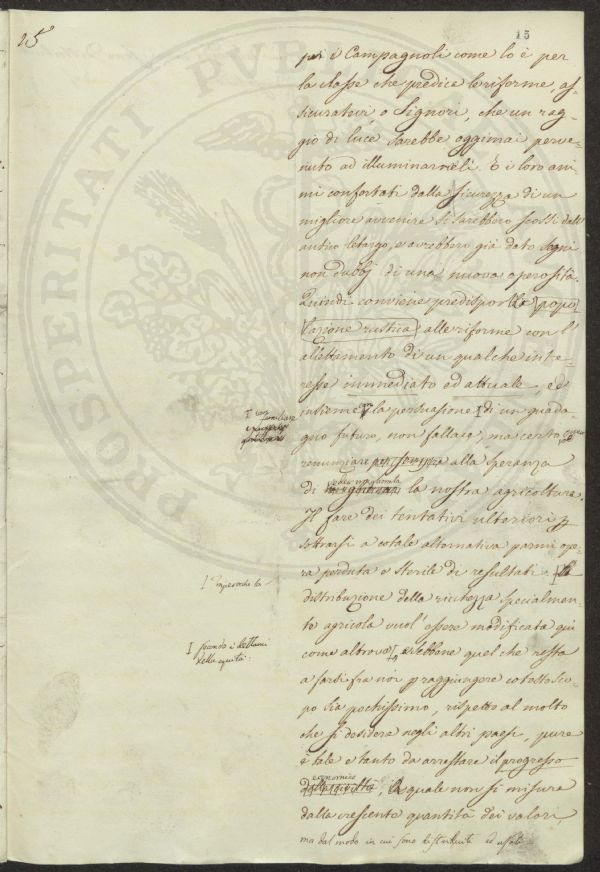 25°
15
per i Campagnoli come lo è per
la classe che predice le riforme, as-
sicuratevi, o Signori, che un rag-
gio di luce sarebbe oggimai perve-
nuto ad illuminarneli. E i loro ani-
mi confortati dalla sicurezza di un
migliore avvenire si sarebbero scossi dall'
antico letargo, e avrebbero già dato segni
non dubbj di una nuova operosità.
Quindi conviene predisporre la popo
lazione rustica alle riforme con l'
allettamento di un qualche inte-
resse immediato ed attuale, e
insieme la persuasione di un guada-
gno futuro, non fallace, ma certo, oppure
renunziare per sempre alla speranza
di veder migliorata la nostra agricoltura.
Il fare dei tentativi ulteriori p
sottrarsi a cotale alternativa parmi ope-
ra perduta e sterile di resultati. La
distribuzione della ricchezza specialmen-
te agricola vuol'essere modificata qui
come altrove, e sebbene quel che resta
a farsi fra noi p raggiungere cotesto sco-
po sia pochissimo, rispetto al molto
che si desidera negli altri paesi, pure
è tale e tanto da arrestare il progresso
economico
della civiltà, il quale non si misura
dalla crescente quantità dei valori,
ma dal modo in cui sono distribuiti ed usati
I con
familiare
I Imperocchè la
I secondo i dettami
della equità.
PROSPERITATI PVBLICAE